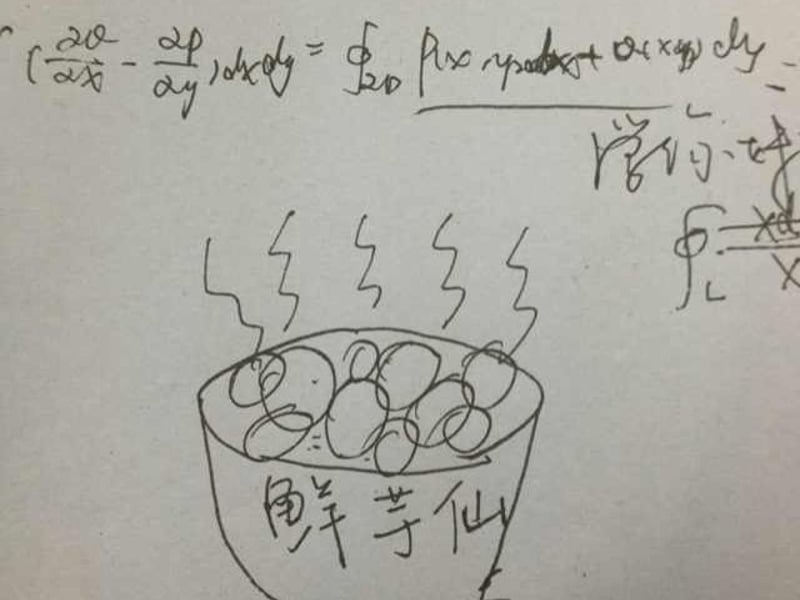 (∂Q/∂x - ∂P/∂y) dxdy = ∮∂D P(x,y)dx + Q(x,y) dy
∮L xd
x
鲜芋仙